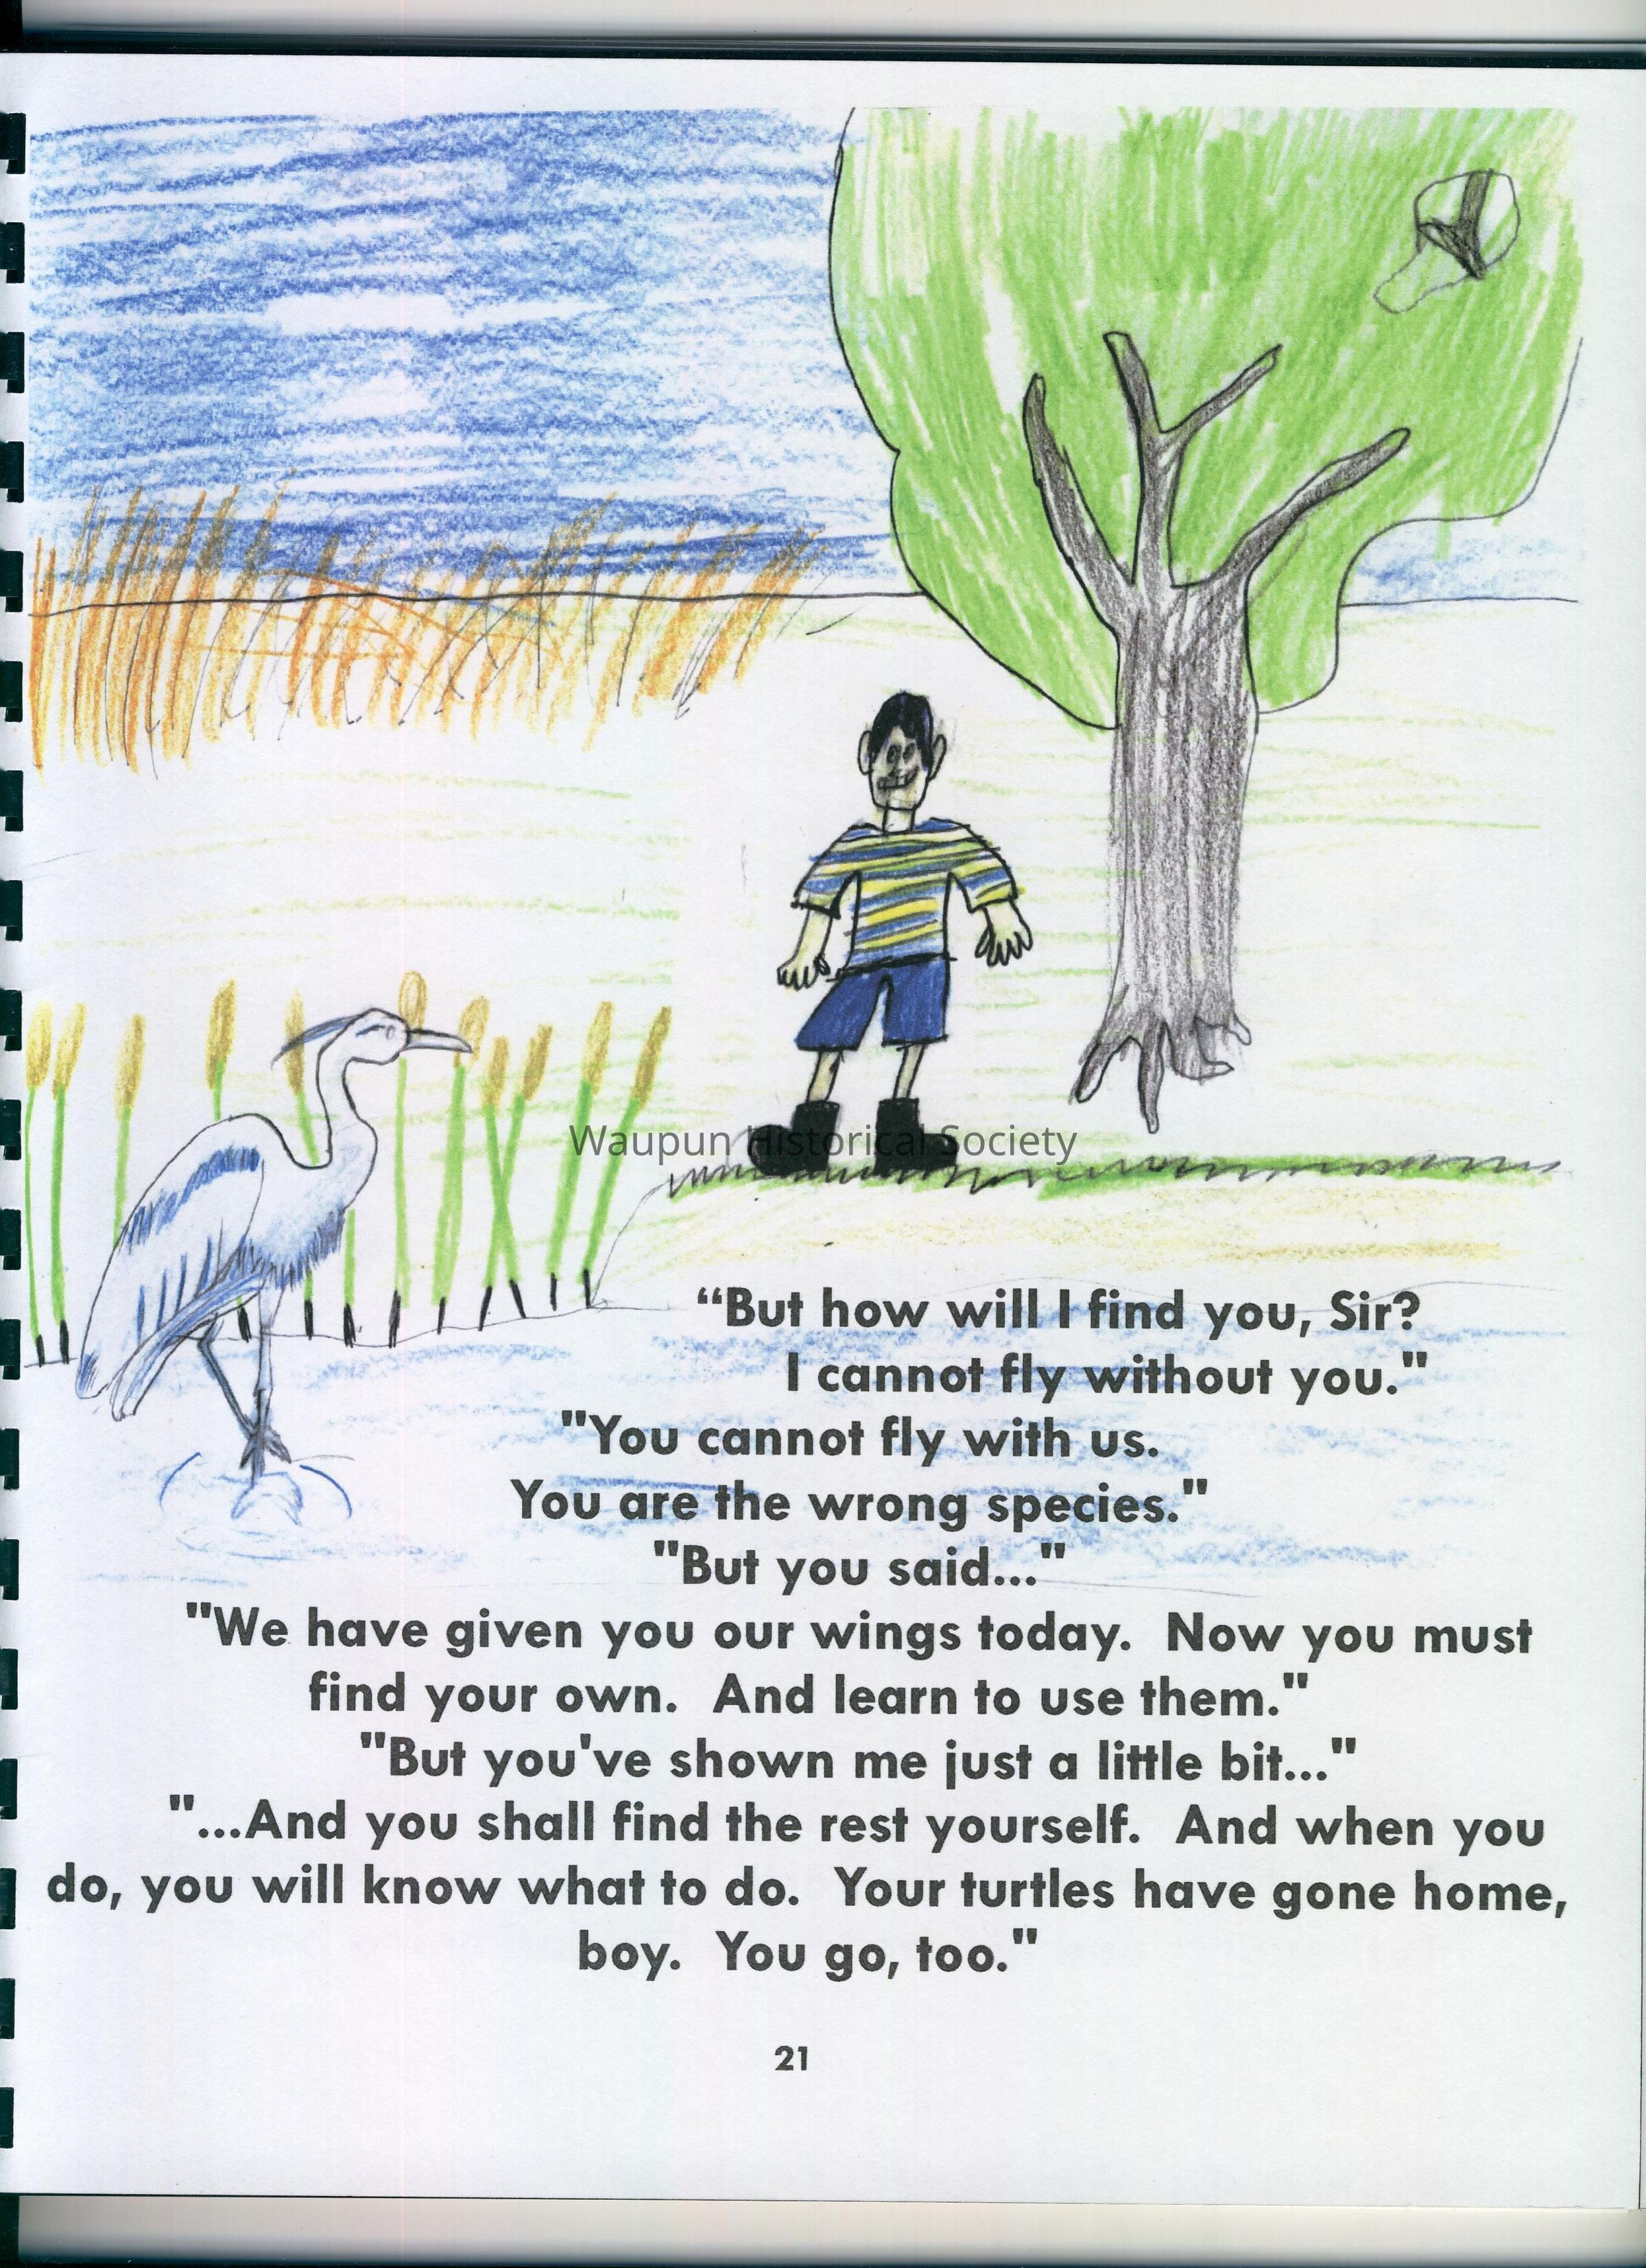 Waupun Historical Society
“But how will I find you, Sir?
I cannot fly without you."
"You cannot fly with us.
You are the wrong species."
"But you said..."
"We have given you our wings today.  Now you must
find your own.  And learn to use them."
"But you've shown me just a little bit..."
"...And you shall find the rest yourself.  And when you
do, you will know what to do.  Your turtles have gone home,
boy.  You go, too."
21